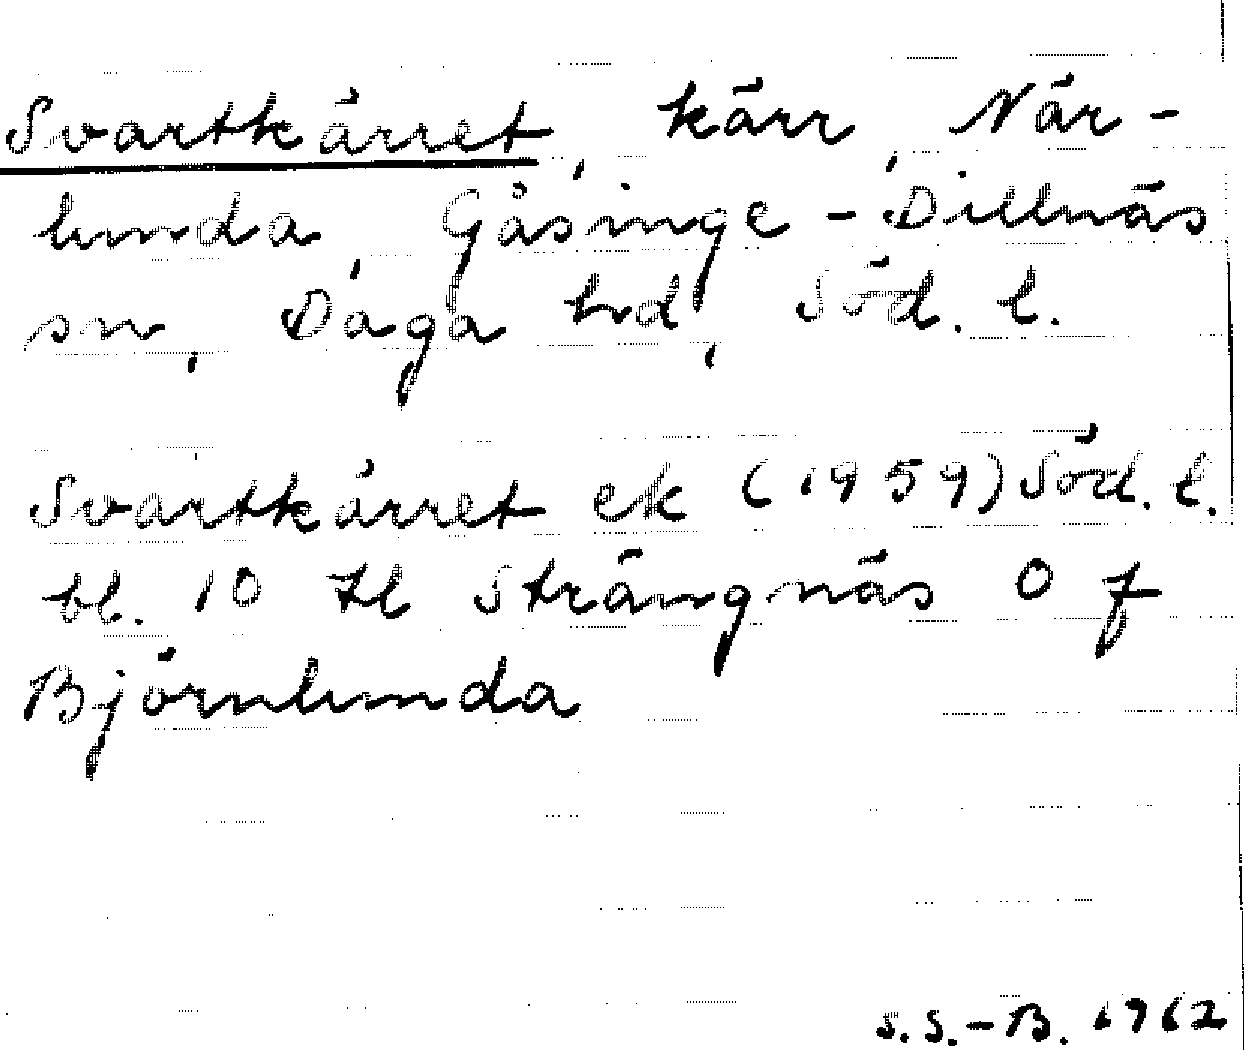 Svartkärret, kärr, När-
lunda, Gåsinge-Dillnäs
sn, Daga hd, Söd. l.
Svartkärret ek (1959) Söd. l.
bl. 10 tl Strängnäs O f
Björnlunda
S.S.-B. 1962